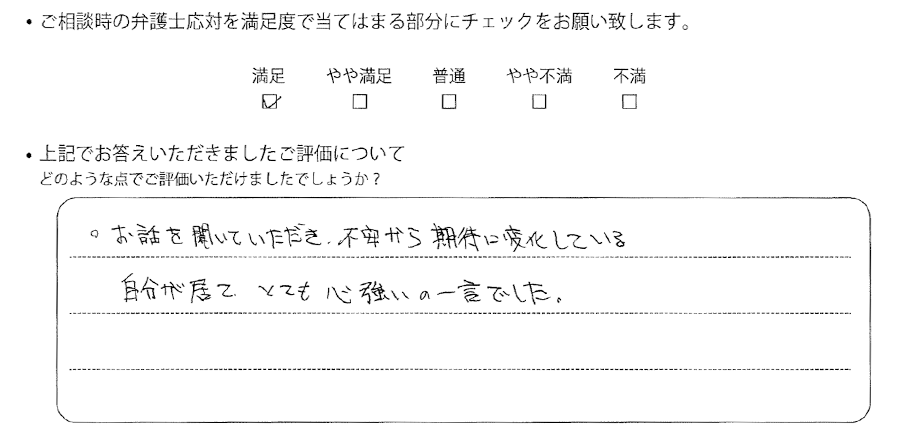 ・ご相談時の弁護士応対を満足度で当てはまる部分にチェックをお願い致します。
満足 やや満足 普通 やや不満 不満
☑ □ □ □ □
・上記でお答えいただきましたご評価について
どのような点でご評価いただけましたでしょうか？
○お話を聞いていただき、不安から期待に変化している
自分が居て とても心強いの一言でした。